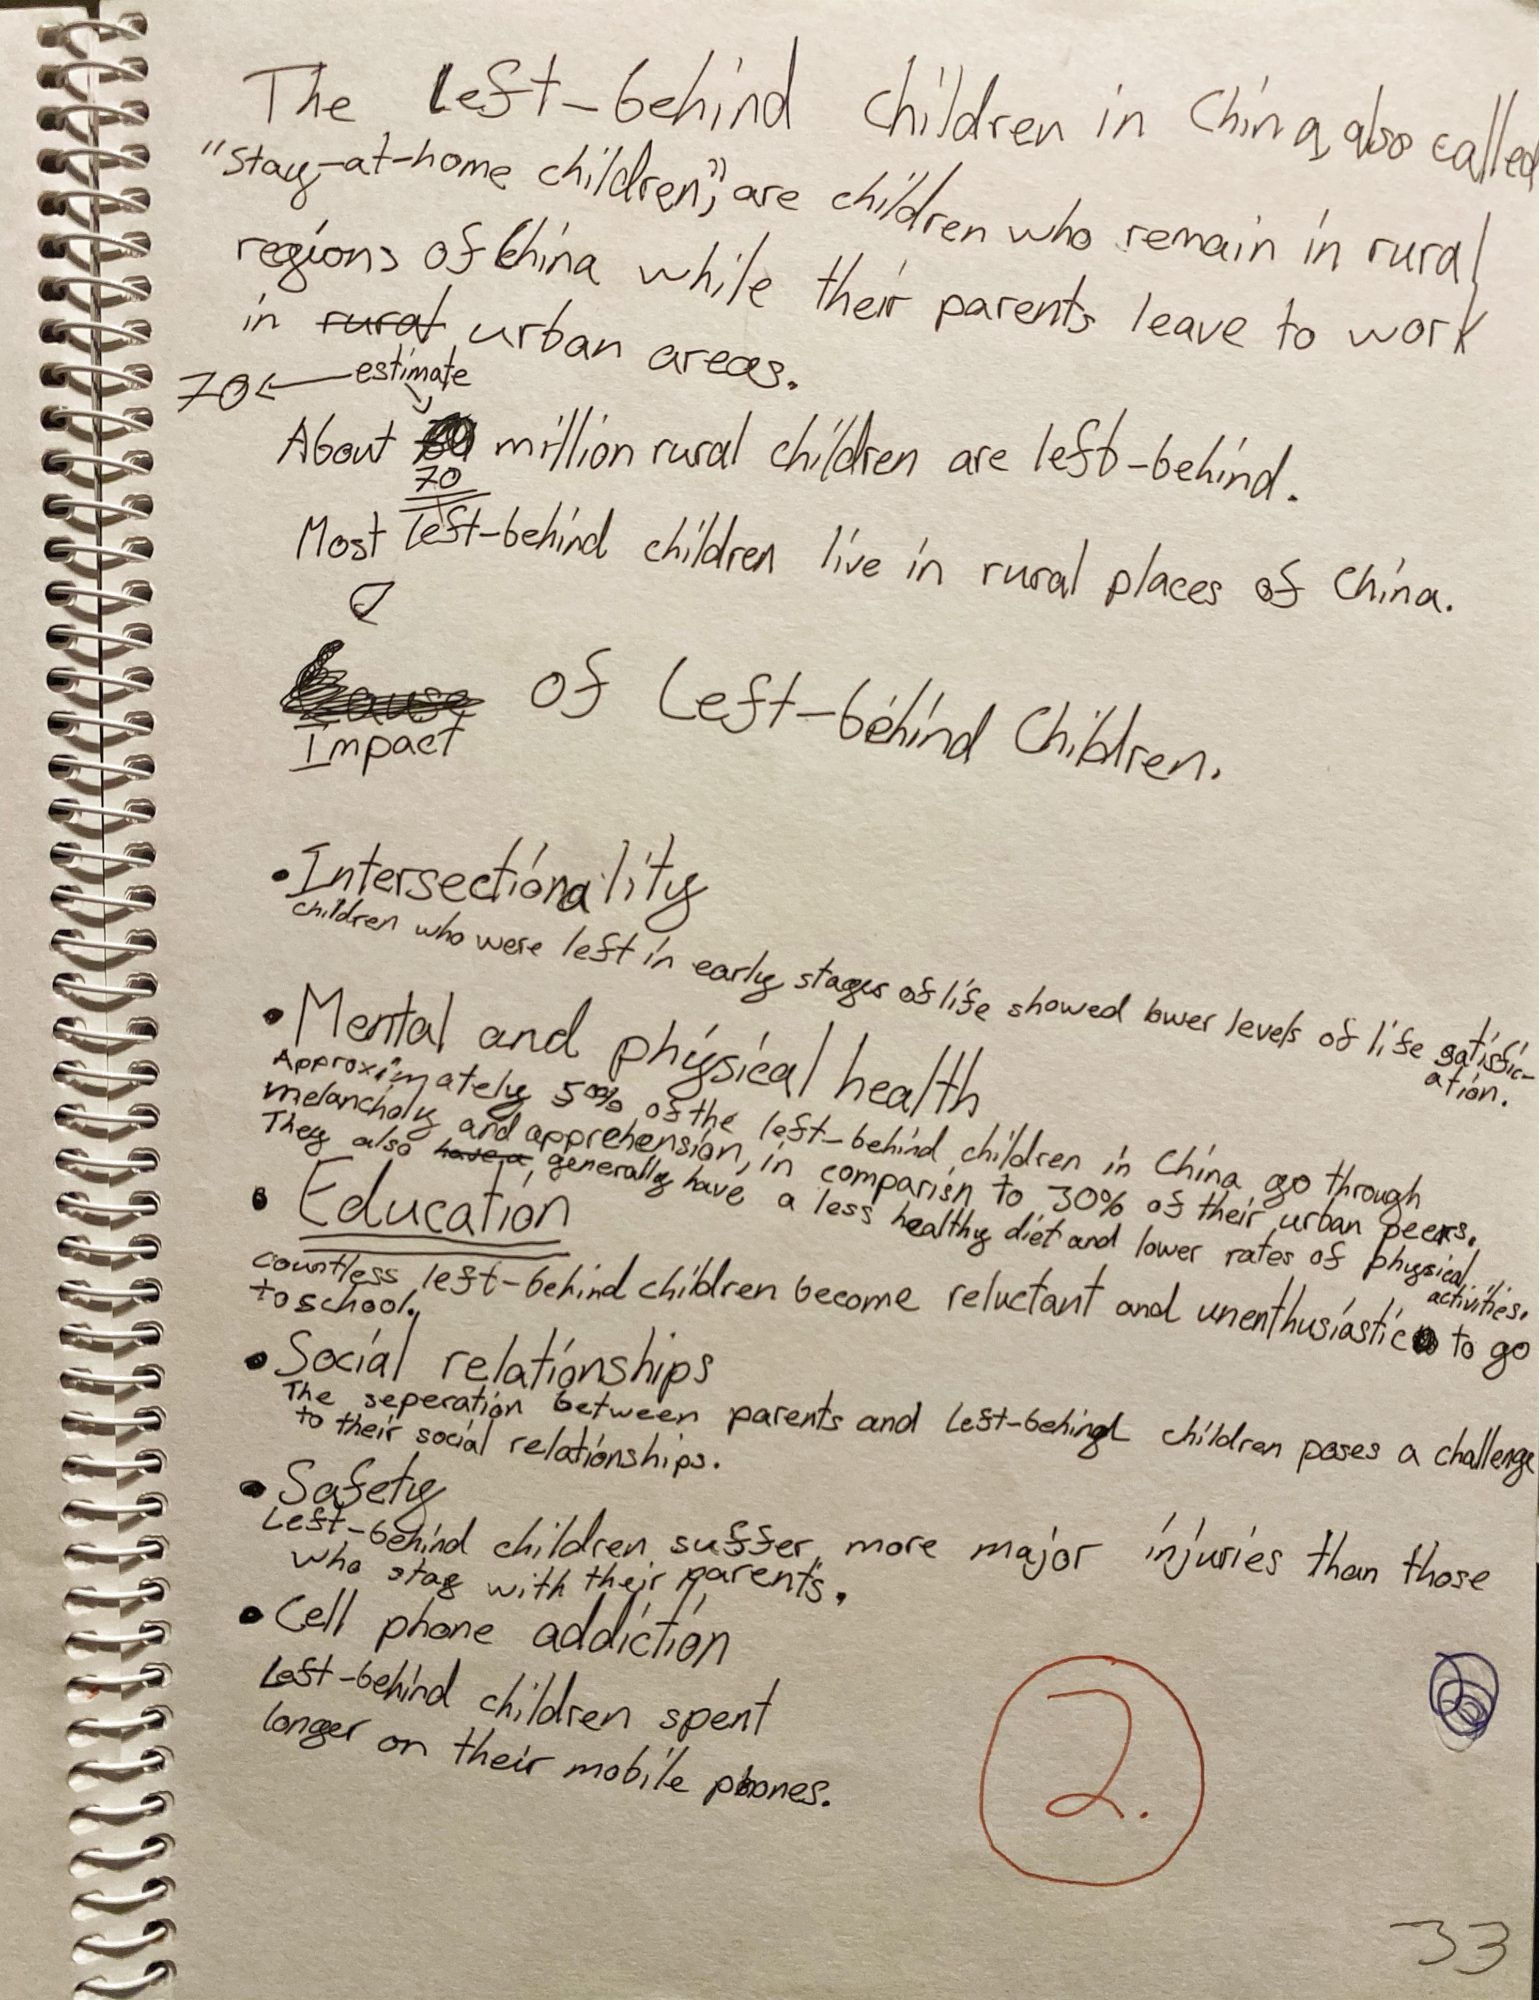 The Left-behind children in China, also called
"stay-at-home children", are children who remain in rural
regions of China while their parents leave to work
in rural urban areas.
70 ← estimate
About million rural children are left-behind.
70
Most left-behind children live in rural places of China.
Cause of Left-behind Children.
Impact
• Intersectionality
children who were left in early stages of life showed lower levels of life satisfic-
ation.
• Mental and physical health
Approximately 50% of the left-behind children in China go through
melancholy and apprehension, in comparisin to 30% of their urban peers.
They also have a generally have a less healthy diet and lower rates of physical
activities.
• Education
countless left-behind children become reluctant and unenthusiastic to go
to school.
• Social relationships
The seperation between parents and left-behind children poses a challenge
to their social relationships.
• Safety
Left-behind children suffer more major injuries than those
who stay with their parents.
• Cell phone addiction
Left-behind children spent
longer on their mobile phones.
2.
33